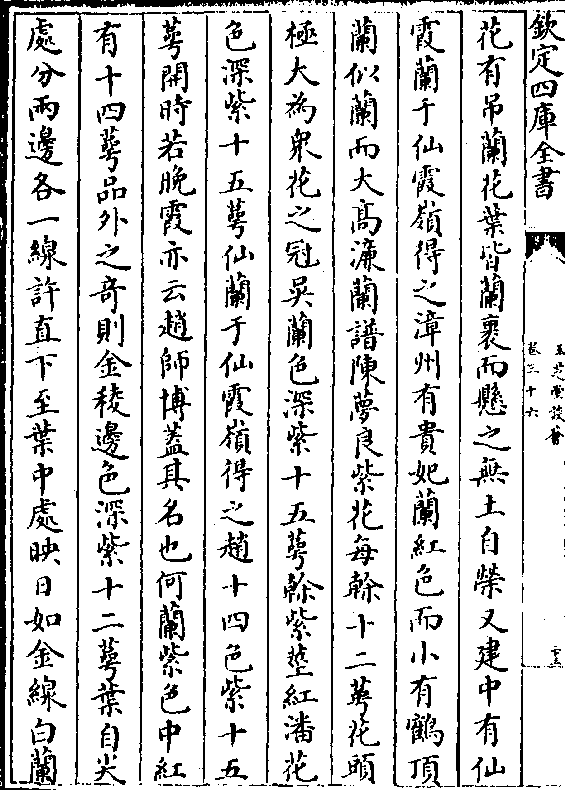 欽定四庫全書
玉芝堂談薈
卷三十六
花有吊蘭花葉皆蘭裹而懸之無土自榮又建中有仙
霞蘭于仙霞嶺得之漳州有貴妃蘭紅色而小有鶴頂
蘭似蘭而大高濂蘭譜陳夢良紫花每榦十二萼花頭
極大為衆花之冠吳蘭色深紫十五萼榦紫莖紅潘花
色深紫十五萼仙蘭于仙霞嶺得之趙十四色紫十五
萼開時若晚霞亦云趙師博蓋其名也何蘭紫色中紅
有十四萼品外之竒則金稜邊色深紫十二萼葉自尖
處分兩邊各一線許直下至葉中處映日如金線白蘭